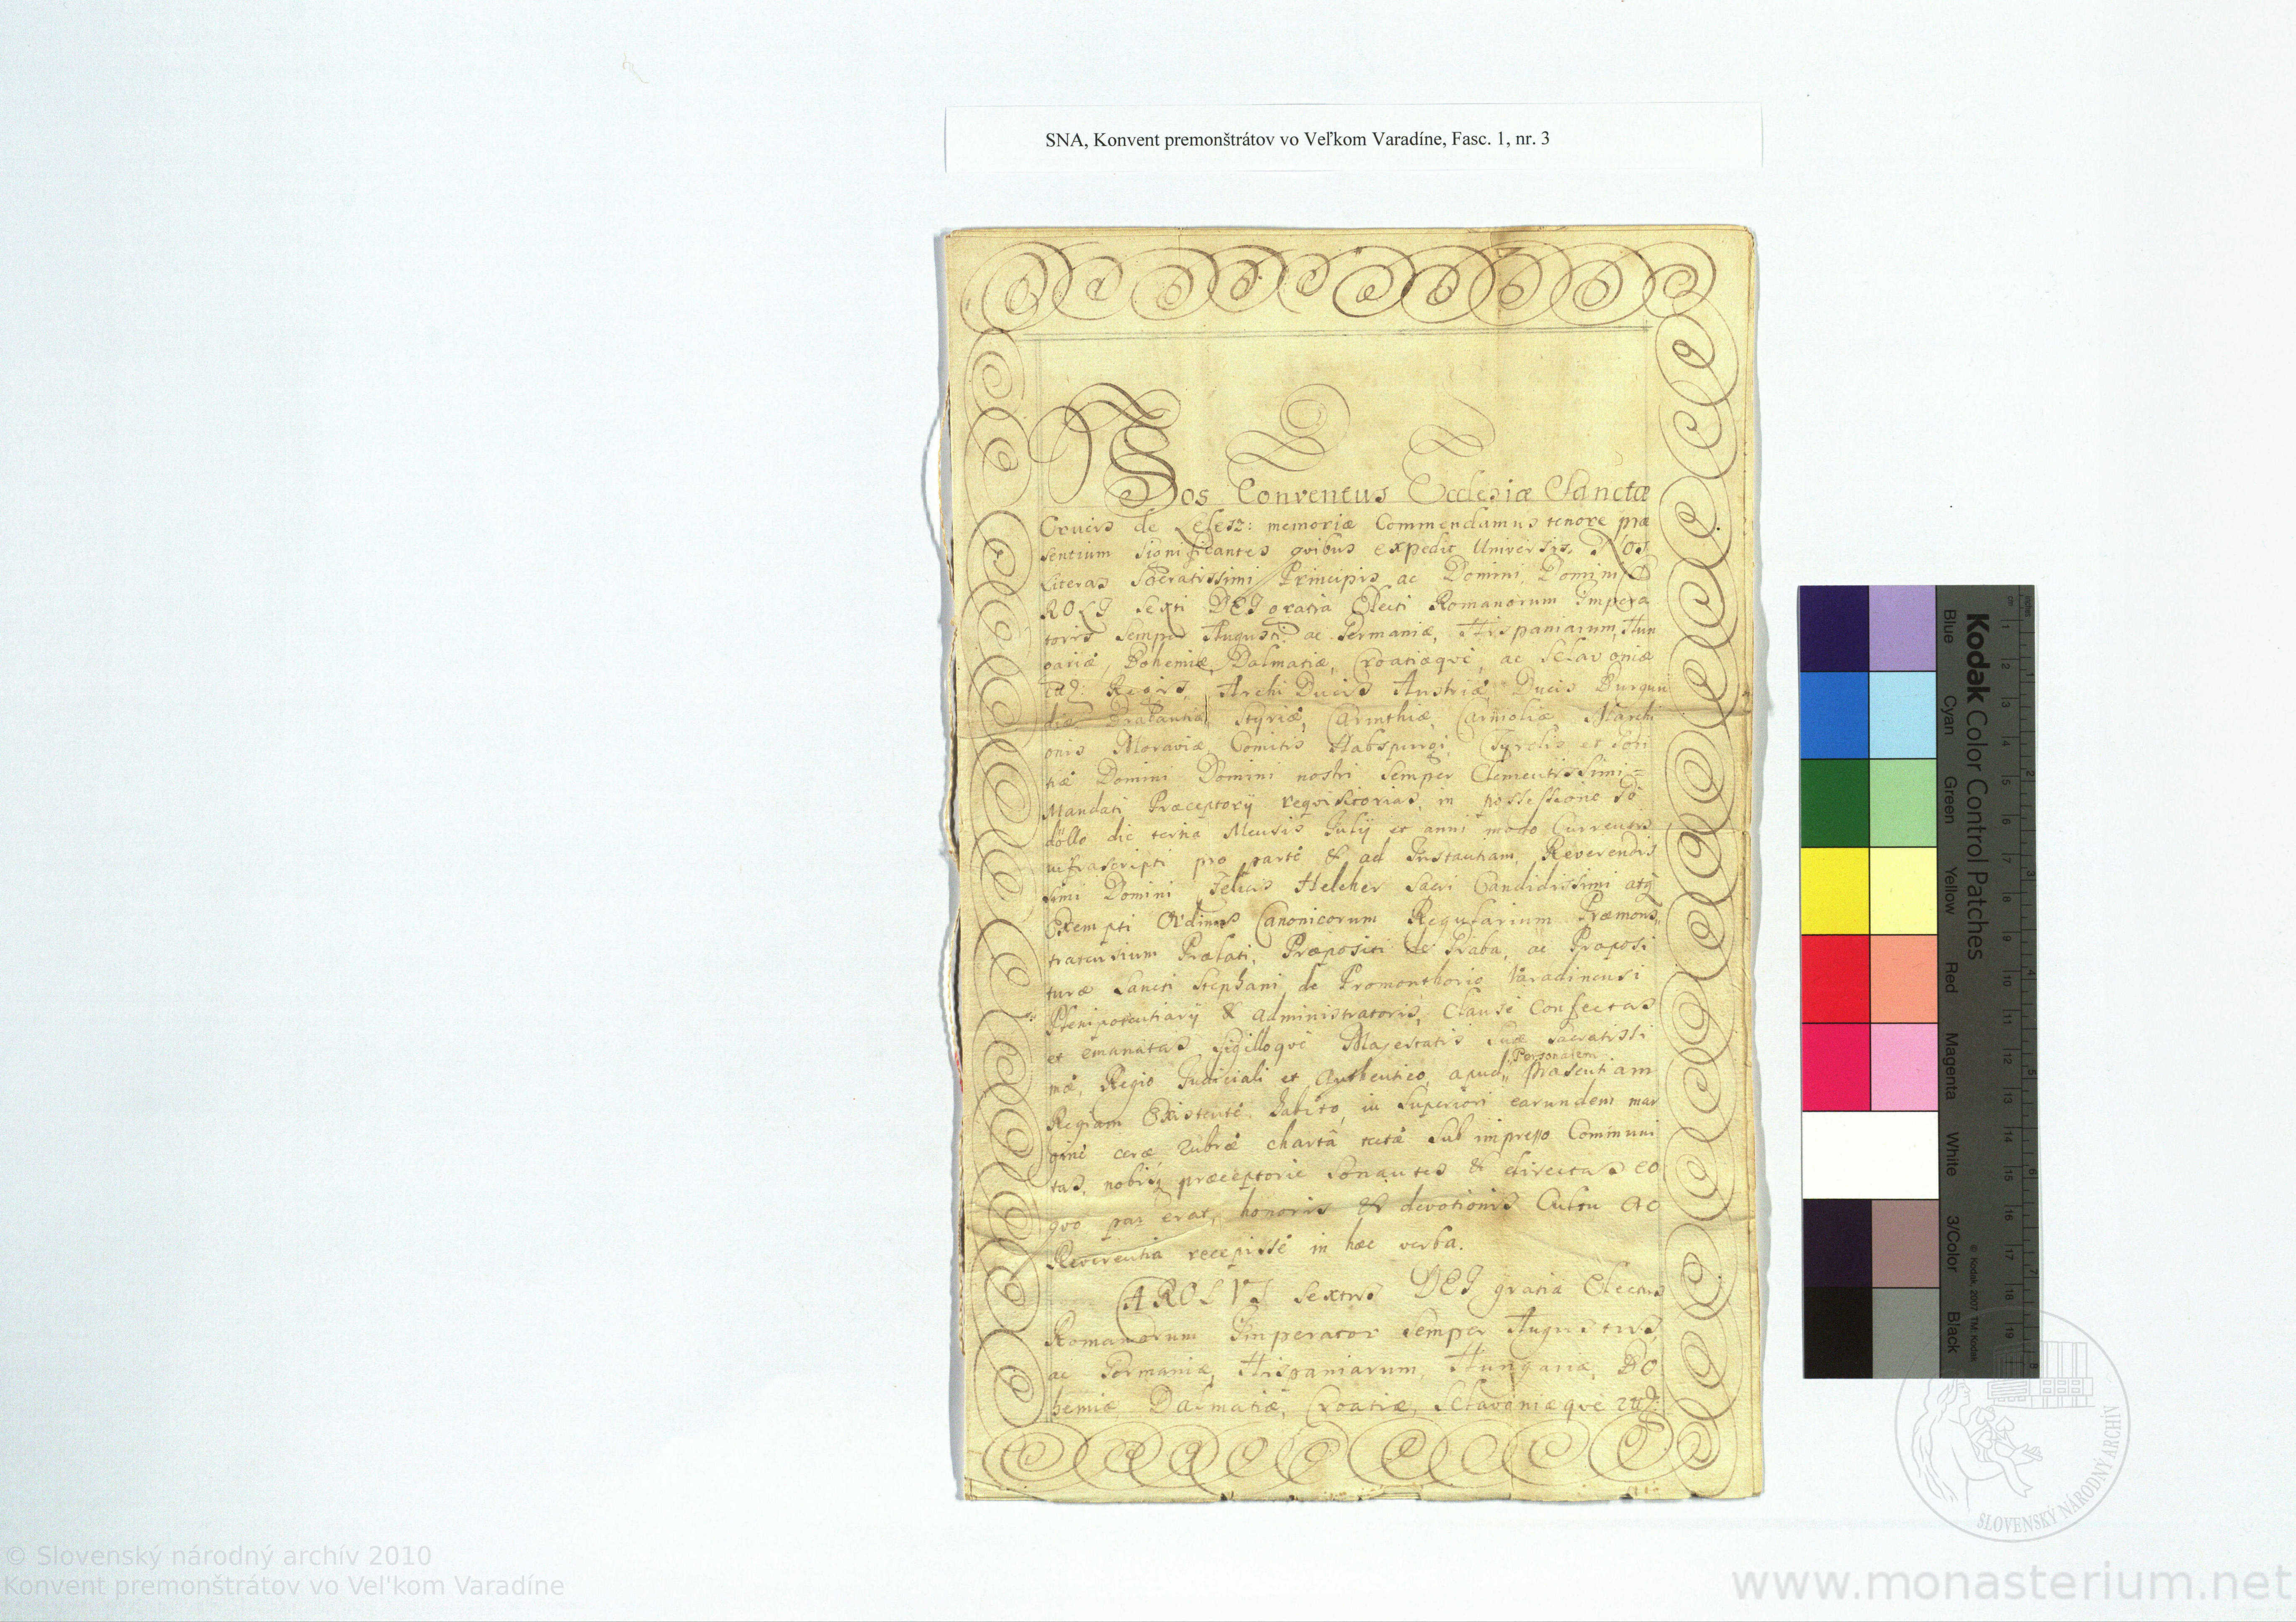 SNA, Konvent premonštrátov vo Veľkom Varadíne, Fasc. 1, nr. 3
Nos Conventus Ecclesiæ Sanctæ
Crucis de Lelesz: memoriæ Commendamus tenore præ
sentium significantes qvibus expedit Universis, Nos
Literas Sacratissimi Principis ac Domini, Domini CA
ROLI Sexti DEI gratia Electi Romanorum Impera
toris Semper Augusti: ac Germaniæ, Hispaniarum, Hun
gariæ, Bohemiæ, Dalmatiæ, Croatiæqvè, ac Sclavoniæ
Regis, Archi Ducis Austriæ Ducis Burgun
diæ Brabantiæ, Styriæ, Carinthiæ, Carnioliæ, Marchi
onis Moraviæ, Comitis Habspurgi, Tyrolis, et Gori
tiæ Domini Domini nostri Semper Clementissimi =
Mandati Præceptorij reqvisitorias, in possessione Gö
döllo die terna Mensis Julij et anni modo Currentis
infrascripti pro parte & ad Instantiam, Reverendis
simi Domini Helcher Sacri Candidissimi atq
Exempti Ordinis Canonicorum Regularium Præmons,,
tratensium Prælati, Præpositi de Praba, ac Præposi
turæ Sancti Stephani de Promonthorio Varadinensi
Plenipotentiarij & administratoris, Clausè Confectas
et emanatas Sigilloqvè Majestatis Suæ Sacratissi
mæ, Regio Judiciali et Authentico, apud,, Personalem præsentiam
Regiam Existentè habito, in Superiori earundem mar
ginè ceræ rubræ chartâ tectæ Sub impresso Communi
tas, nobisq præceptoriè Sonantes & directas eo
qvo par erat, honoris & devotionis Cultu ac
Reverentia recepissè in hæc verba.
CAROLVS Sextus DEI gratia Electus
Romanorum Imperator Semper Augustus,
ac Germaniæ, Hispaniarum, Hungariæ, Bo
hemiæ Dalmatiæ, Croatiæ, Sclavoniæqvè
Kodak Color Control Patches
Blue
Cyan
Green
Yellow
Red
Magenta
White
3/Color
Black
© Kodak, 2007 TM: Kodak
SLOVENSKÝ NÁRODNÝ ARCHÍV
© Slovenský národný archív 2010
Konvent premonštrátov vo Veľkom Varadíne
www.monasterium.net